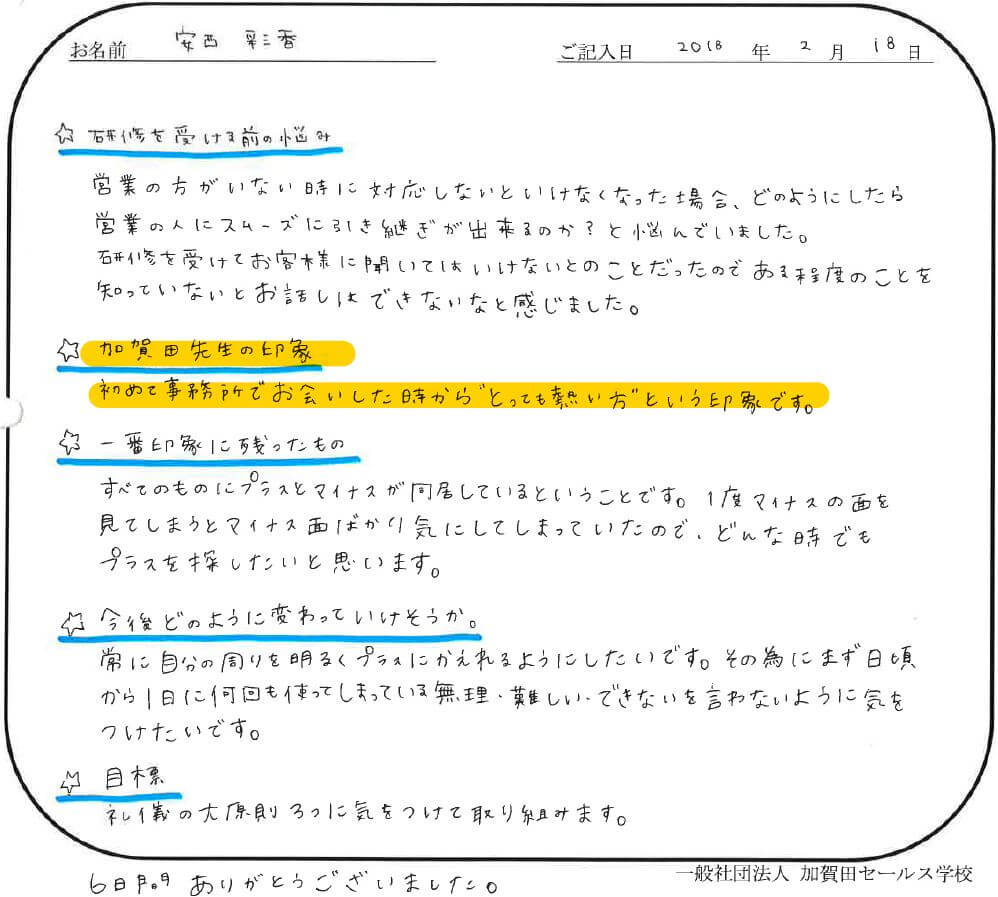 お名前 安西 彩香 ご記入日 2018 年 2 月 18 日
☆ 研修を受ける前の悩み
営業の方がいない時に対応しないといけなくなった場合、どのようにしたら
営業の人にスムーズに引き継ぎが出来るのか?と悩んでいました。
研修を受けてお客様に聞いてはいけないとのことだったのである程度のことを
知っていないとお話しはできないなと感じました。
☆ 加賀田先生の印象
初めて事務所でお会いした時から"とっても熱い方"という印象です。
☆ 一番印象に残ったもの
すべてのものにプラスとマイナスが同居しているということです。1度マイナスの面を
見てしまうとマイナス面ばかり気にしてしまっていたので、どんな時でも
プラスを探したいと思います。
☆ 今後どのように変わっていけそうか。
常に自分の周りを明るくプラスにかえれるようにしたいです。その為にまず日頃
から1日に何回も使ってしまっている無理・難しい・できないを言わないように気を
つけたいです。
☆ 目標
礼儀の大原則3つに気をつけて取り組みます。
一般社団法人 加賀田セールス学校
6日間 ありがとうございました。